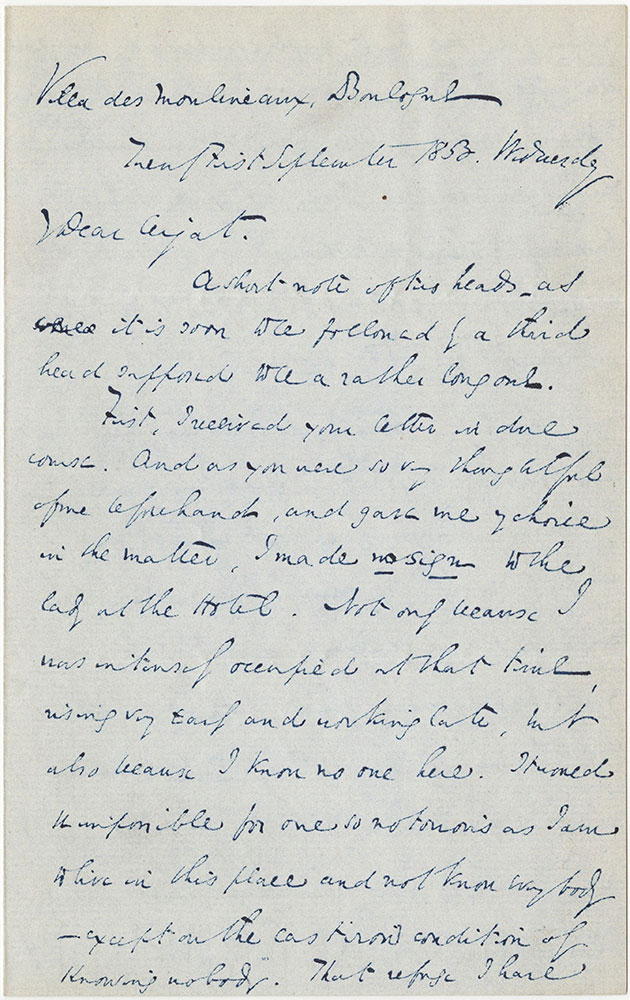 Villa des Moulineaux, Boulogne
Twenty First September 1853. Wednesday
My Dear Cerjat.
A short note of two heads – as
it is soon to be followed by a third
head supposed to be a rather long one.
First, I received your letter in due
course. And as you were so very thoughtful
of me beforehand, and gave me my choice
in the matter, I made no sign to the
lady at the Hotel. Not only because I
was intensely occupied at that time,
rising very early and working late, but
also because I know no one here. It would
be impossible for one so notorious as I am
to live in this place and not know everybody
– except on the cast iron condition of
knowing nobody. That refuge I have